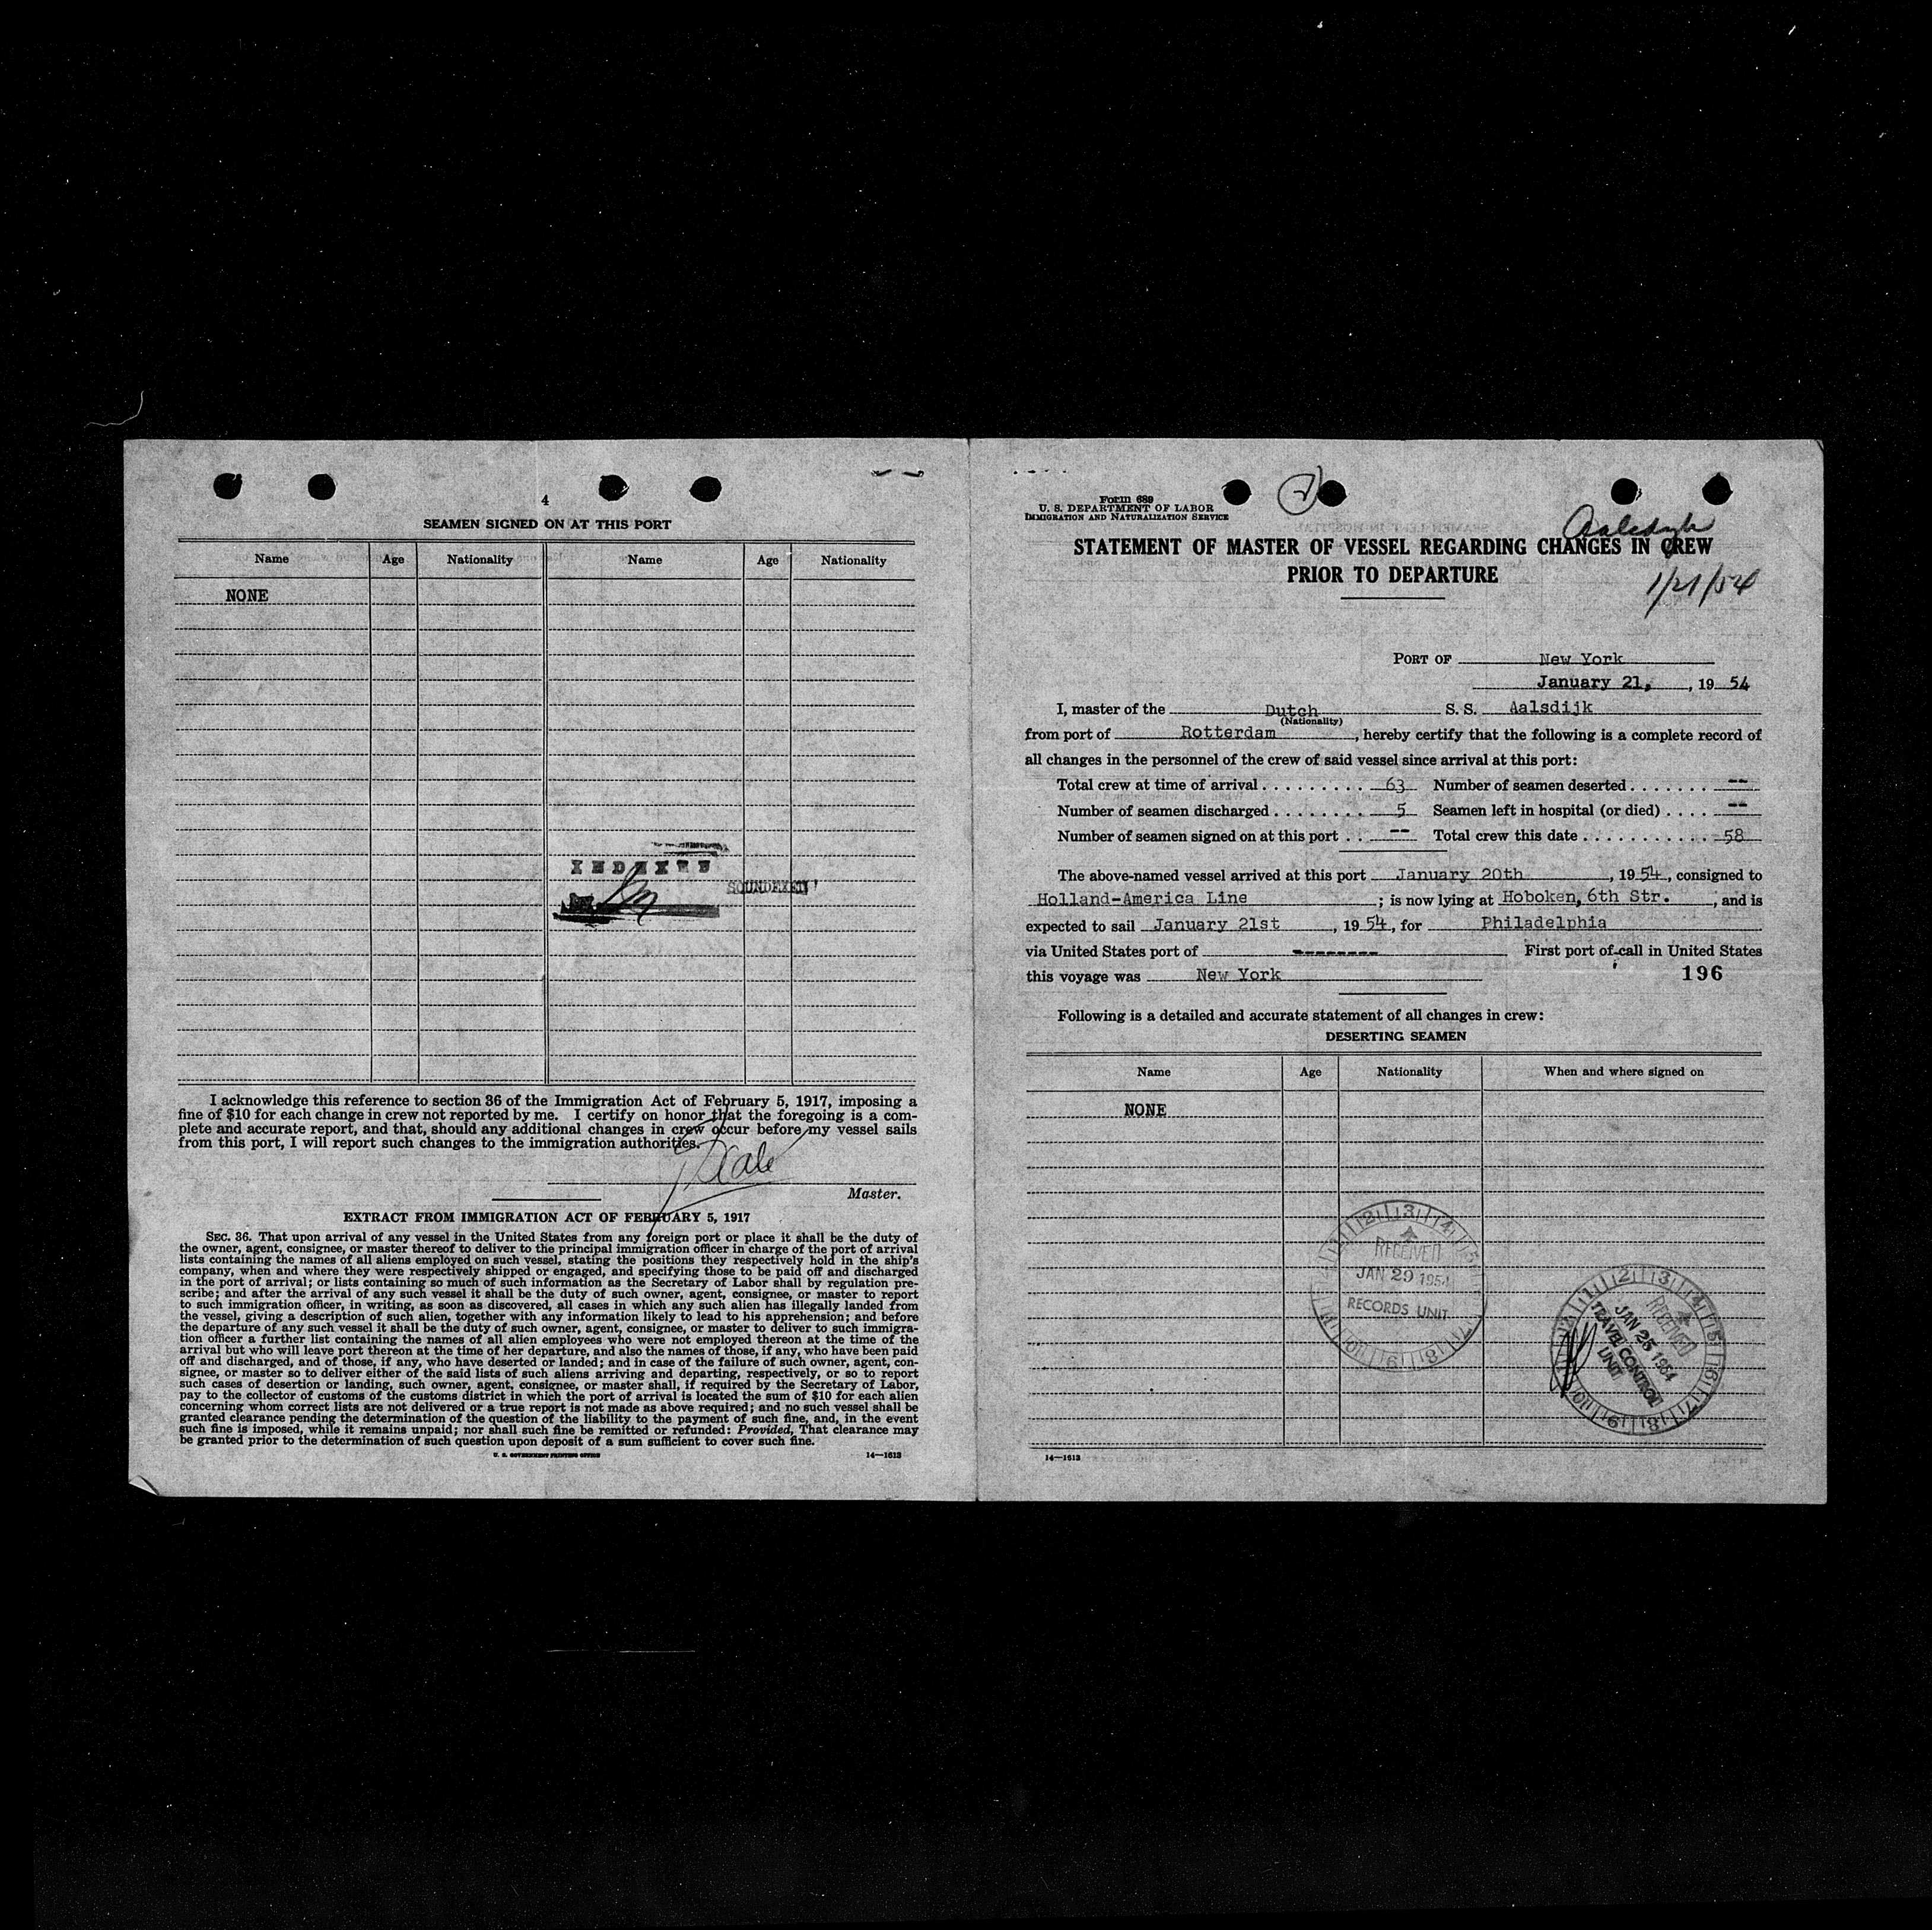 4
SEAMEN SIGNED ON AT THIS PORT
Name Age Nationality Name Age Nationality
NONE
INDEXED
SOUNDEXED
I acknowledge this reference to section 36 of the Immigration Act of February 5, 1917, imposing a
fine of $10 for each change in crew not reported by me. I certify on honor that the foregoing is a com-
plete and accurate report, and that, should any additional changes in crew occur before my vessel sails
from this port, I will report such changes to the immigration authorities.
Master.
EXTRACT FROM IMMIGRATION ACT OF FEBRUARY 5, 1917
SEC. 36. That upon arrival of any vessel in the United States from any foreign port or place it shall be the duty of
the owner, agent, consignee, or master thereof to deliver to the principal immigration officer in charge of the port of arrival
lists containing the names of all aliens employed on such vessel, stating the positions they respectively hold in the ship's
company, when and where they were respectively shipped or engaged, and specifying those to be paid off and discharged
in the port of arrival; or lists containing so much of such information as the Secretary of Labor shall by regulation pre-
scribe; and after the arrival of any such vessel it shall be the duty of such owner, agent, consignee, or master to report
to such immigration officer, in writing, as soon as discovered, all cases in which any such alien has illegally landed from
the vessel, giving a description of such alien, together with any information likely to lead to his apprehension; and before
the departure of any such vessel it shall be the duty of such owner, agent, consignee, or master to deliver to such immigra-
tion officer a further list containing the names of all alien employees who were not employed thereon at the time of the
arrival but who will leave port thereon at the time of her departure, and also the names of those, if any, who have been paid
off and discharged, and of those, if any, who have deserted or landed; and in case of the failure of such owner, agent, con-
signee, or master so to deliver either of the said lists of such aliens arriving and departing, respectively, or so to report
such cases of desertion or landing, such owner, agent, consignee, or master shall, if required by the Secretary of Labor,
pay to the collector of customs of the customs district in which the port of arrival is located the sum of $10 for each alien
concerning whom correct lists are not delivered or a true report is not made as above required; and no such vessel shall be
granted clearance pending the determination of the question of the liability to the payment of such fine, and, in the event
such fine is imposed, while it remains unpaid; nor shall such fine be remitted or refunded: Provided, That clearance may
be granted prior to the determination of such question upon deposit of a sum sufficient to cover such fine.
U. S. GOVERNMENT PRINTING OFFICE 14—1613
Form 689
U. S. DEPARTMENT OF LABOR
IMMIGRATION AND NATURALIZATION SERVICE
Aalsdyk
STATEMENT OF MASTER OF VESSEL REGARDING CHANGES IN CREW
PRIOR TO DEPARTURE
1/21/54
PORT OF New York
January 21, , 19 54
I, master of the Dutch S. S. Aalsdijk
(Nationality)
from port of Rotterdam , hereby certify that the following is a complete record of
all changes in the personnel of the crew of said vessel since arrival at this port:
Total crew at time of arrival . . . . . . . . . 63 Number of seamen deserted . . . . . . . --
Number of seamen discharged . . . . . . . . 5 Seamen left in hospital (or died) . . . . --
Number of seamen signed on at this port . . -- Total crew this date . . . . . . . . . . . . 58
The above-named vessel arrived at this port January 20th , 19 54, consigned to
Holland-America Line ; is now lying at Hoboken, 6th Str. , and is
expected to sail January 21st , 19 54, for Philadelphia
via United States port of -------- First port of call in United States
this voyage was New York 196
Following is a detailed and accurate statement of all changes in crew:
DESERTING SEAMEN
Name Age Nationality When and where signed on
NONE
RECEIVED
JAN 29 1954
RECORDS UNIT
RECEIVED
JAN 25 1954
TRAVEL CONTROL
UNIT
14—1613